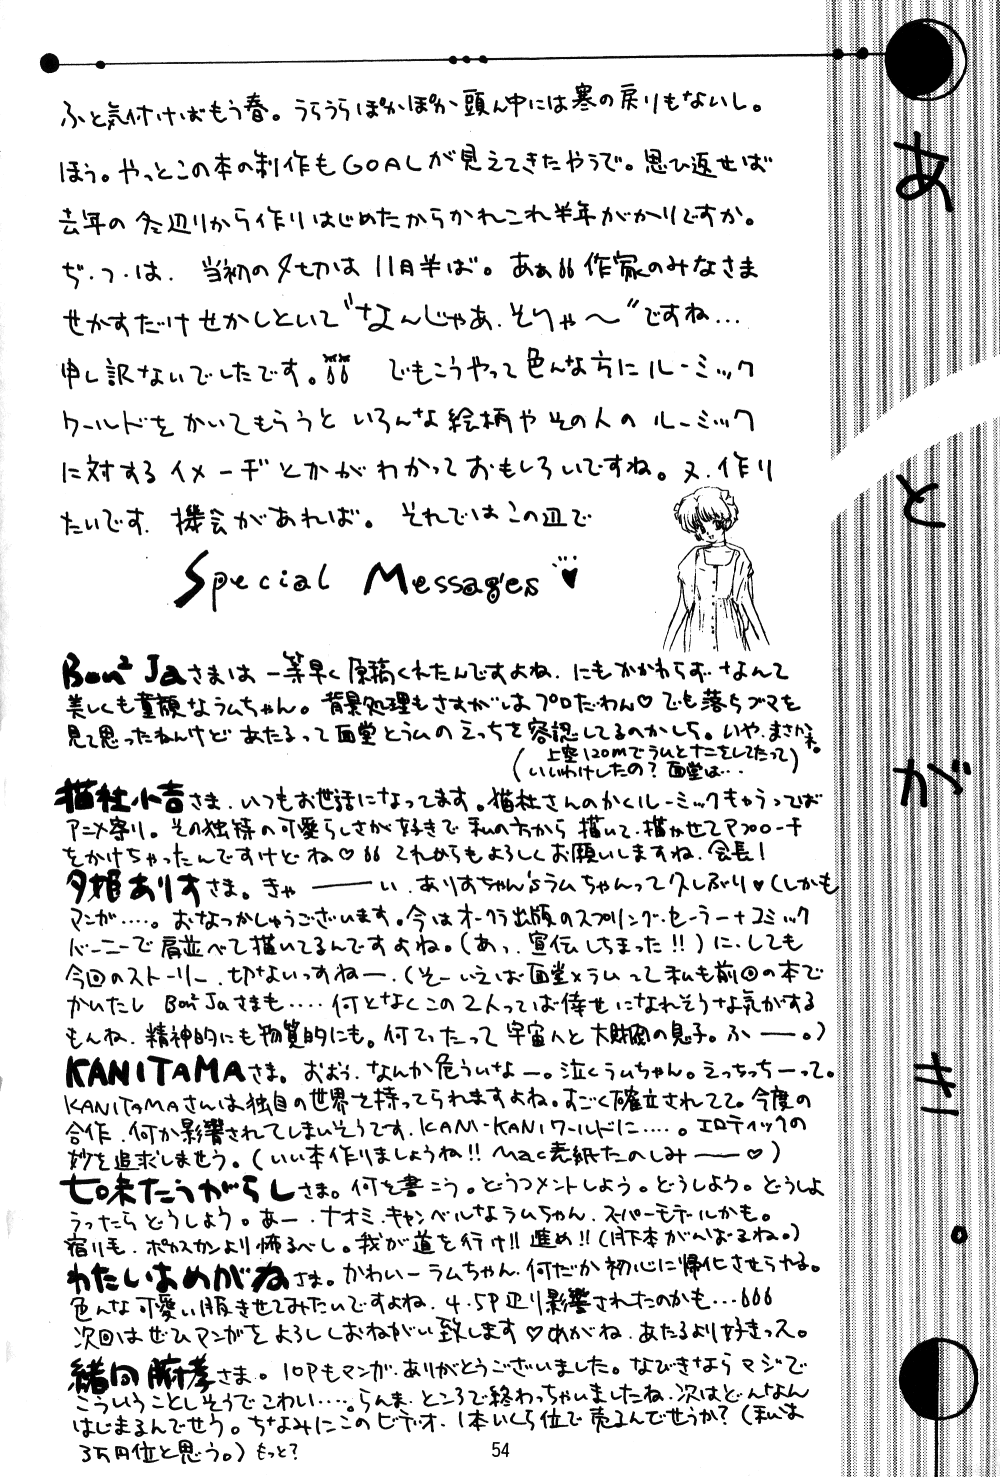 あとがき。
ふと気付けばおもう春。うらうらぽかぽか頭ん中には寒の戻りもないし。
ほう。やっとこの本の制作もGOALが見えてきたやうで。思ひ返せば
去年の冬辺りから作りはじめたからかれこれ半年がかりですか。
ぢ・つ・は、当初の〆切は11月半ば。あぁ作家のみなさま
せかすだけせかしといて"なんじゃあ、そりゃ〜"ですね…
申し訳ないでしたです。でもこうやって色んな方にルーミック
ワールドをかいてもらうといろんな絵柄やその人のルーミック
に対するイメーヂとかがわかっておもしろいですね。又、作り
たいです、機会があれば。それではこの辺で
Special Messages♥
Bon² Jaさまは一等早く原稿くれたんですよね、にもかかわらず、なんて
美しくも童顔なラムちゃん。背景処理もさすがはプロだわん♡でも落ちゴマを
見て思ったねんけどあたるって面堂とラムのえっちを容認してるのかしら。いや、まさかネ。
(上空120mでラムとナニをしてたって
いいわけしたの?面堂は‥)
猫社小吉さま、いつもお世話になってます。猫社さんのかくルーミックきゃらってば
アニメ寄り。その独特の可愛らしさが好きで私の方から描いて、描かせてアプローチ
をかけちゃったんですけどね♡これからもよろしくお願いしますね、会長!
夕姫ありすさま。きゃ――い、ありすちゃん'sラムちゃんって久しぶり♥(しかも
マンガ‥‥。おなつかしゅうございます。今はオークラ出版のスプリング・セーラー+コミック
バーニーで肩並べて描いてるんですよね。(あっ、宣伝しちまった!!)に、しても
今回のストーリー、切ないっすねー、(そーいえば面堂×ラムって私も前回の本で
かいたし Bon² Jaさまも‥‥何となくこの2人ってば倖せになれそうな気がする
もんね、精神的にも物質的にも。何てったって宇宙人と大財閥の息子。ふ――。)
KANITAMAさま。おおう、なんか危ういなー。泣くラムちゃん。えっちっちーって。
KANITAMAさんは独自の世界を持ってられますよね。すごく確立されてて。今度の
合作、何か影響されてしまいそうです、KANI-KANIワールドに‥‥。エロティックの
妙を追求しませう。(いい本作りましょうね!!Mac表紙たのしみ――♡)
七味たうがらしさま。何を書こう。どうコメントしよう。どうしよう。どうしよ
うったらどうしよう。あー、ナオミ・キャンベルなラムちゃん、スーパーモデルかも。
宿り毛、ポカスカンより怖るべし。我が道を行け!!進め!!(月下本がんばるね。)
わたしはめがねさま。かわいーラムちゃん、何だか初心に帰化させらる。
色んな可愛い服きせてみたいですよね、4.5P辺り影響されたのかも…
次回はぜひマンガをよろししおねがい致します♡めがね、あたるより好きっス。
さま。10Pもマンガ、ありがとうございました。なびきならマジで
こういうことしそうでこわい‥‥。らんま、ところで終わっちゃいましたね、次はどんなん
はじまるんでせう。ちなみにこのビデオ、1本いくら位で売るんでせうか?(私は
3万円位と思う。)もっと?
54